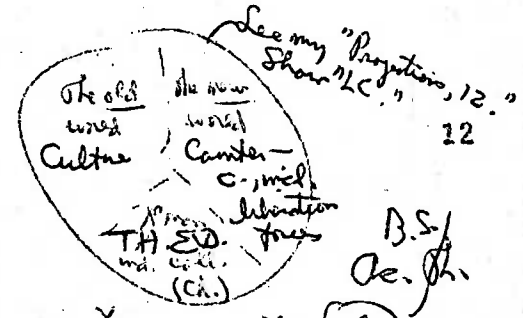 See my "Projections, 12."
Show "LC."
12
The old
world
Culture
the new
world
Counter-
c., incl.
liberation
forces
TH ED.
(Ch.)
B.S./